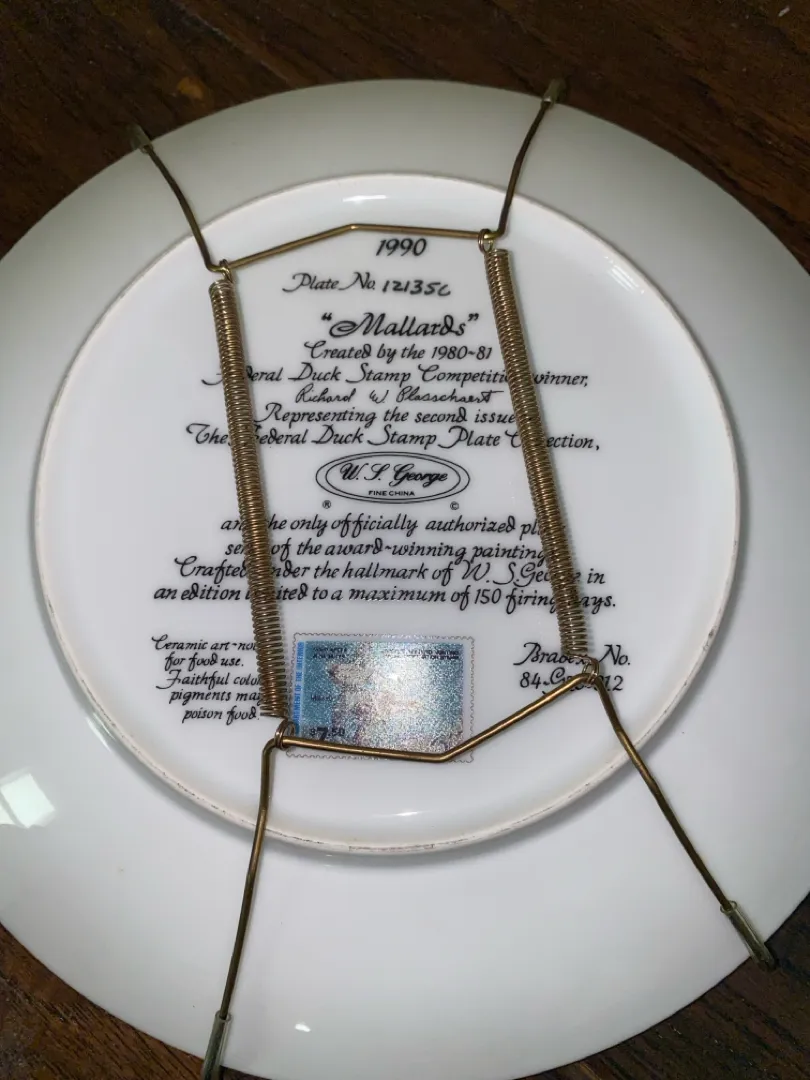 1990
Plate No. 12135C
"Mallards"
Created by the 1980-81
Federal Duck Stamp Competition winner,
Richard W Plasschaert
Representing the second issue
The Federal Duck Stamp Plate Collection,
W. S. George
FINE CHINA
® ©
and the only officially authorized plate
series of the award-winning paintings
Crafted under the hallmark of W. S. George in
an edition limited to a maximum of 150 firing days.
Ceramic art-not
for food use.
Faithful color
pigments may
poison food.
$7.50
Bradex No.